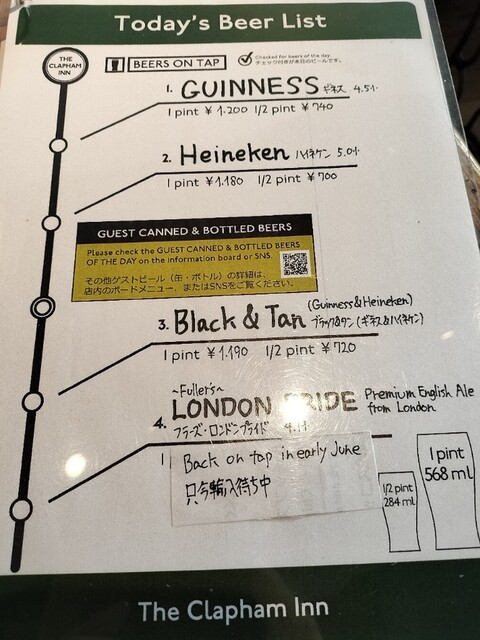 Today's Beer List
THE
CLAPHAM
INN
BEERS ON TAP
Checked for beers of the day
チェック付きが本日のビールです。
1. GUINNESS ギネス 4.5%
1 pint ¥1.200 1/2 pint ¥740
2. Heineken ハイネケン 5.0%
1 pint ¥1.180 1/2 pint ¥700
GUEST CANNED & BOTTLED BEERS
Please check the GUEST CANNED & BOTTLED BEERS
OF THE DAY on the information board or SNS.
その他ゲストビール（缶・ボトル）の詳細は、
店内のボードメニュー、またはSNSをご覧ください。
(Guinness & Heineken)
3. Black & Tan ブラック&タン (ギネス&ハイネケン)
1 pint ¥1.190 1/2 pint ¥720
~Fuller's~
4. LONDON PRIDE Premium English Ale
from London
フラーズ・ロンドンプライド 4.1%
1
Back on tap in early June
只今輸入待ち中
1/2 pint
284 ml
1 pint
568 ml
The Clapham Inn